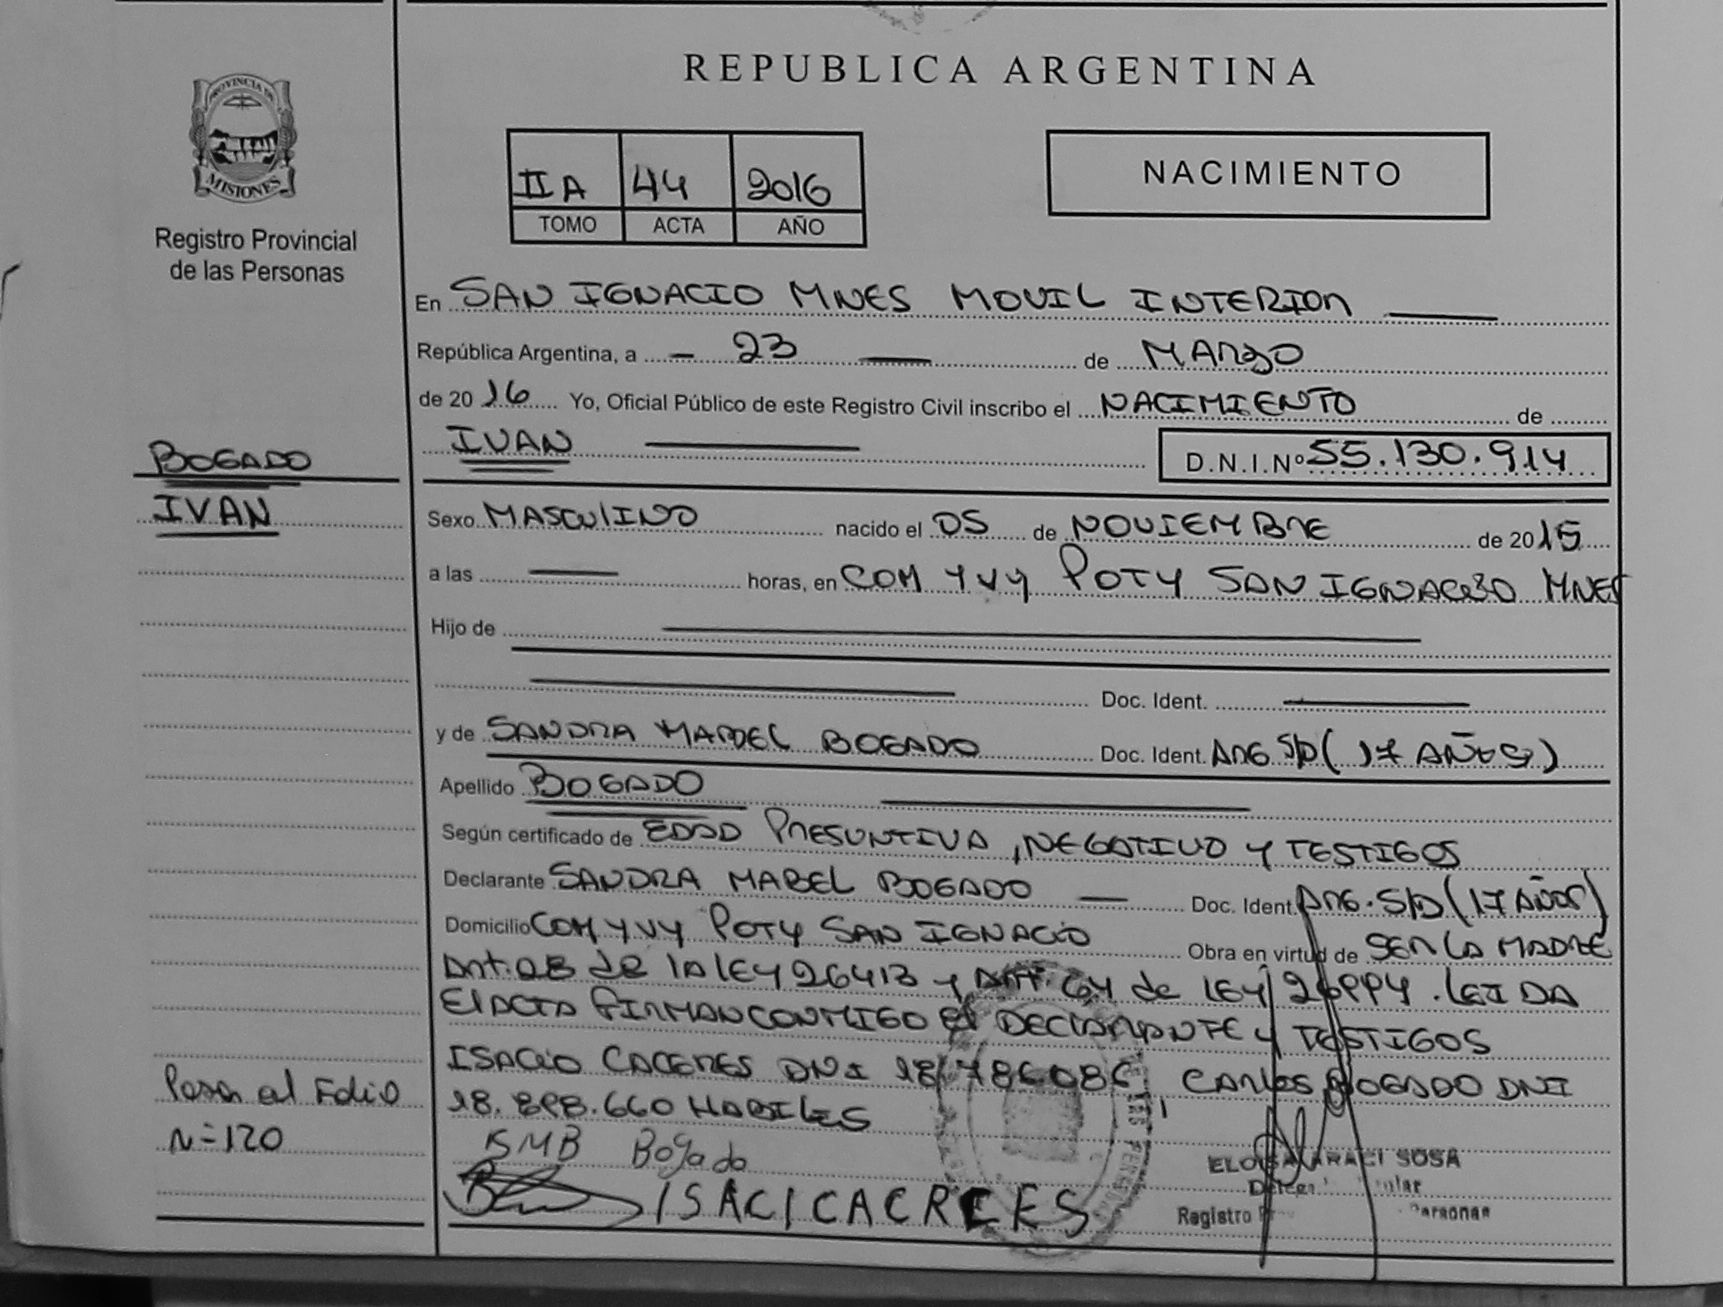 REPUBLICA ARGENTINA
PROVINCIA DE
MISIONES
Registro Provincial
de las Personas
II A 44 2016
TOMO ACTA AÑO
NACIMIENTO
En SAN IGNACIO MNES MOVIL INTERIOR
República Argentina, a 23 de MARZO
de 2016 Yo, Oficial Público de este Registro Civil inscribo el NACIMIENTO de
IVAN D.N.I.Nº 55.130.914
BOGADO
IVAN
Sexo MASCULINO nacido el 05 de NOVIEMBRE de 2015
a las horas, en COM YVY POTY SAN IGNACIO MNES
Hijo de
Doc. Ident.
y de SANDRA MABEL BOGADO Doc. Ident. ARG S/D (17 AÑOS)
Apellido BOGADO
Según certificado de EDAD PRESUNTIVA, NEGATIVO Y TESTIGOS
Declarante SANDRA MABEL BOGADO Doc. Ident. ARG. S/D (17 AÑOS)
Domicilio COM YVY POTY SAN IGNACIO Obra en virtud de SER LA MADRE
Art. 28 de la LEY 26413 y Art. 64 de LEY 26994. LEIDA
El ACTA FIRMAN CONMIGO El DECLARANTE Y TESTIGOS
ISACIO CACERES DNI CARLOS BOGADO DNI
18.898.660 HABILES
Pasa al Folio
Nº 120
SMB Bogado
ISACICACRCES
ELOISA ARACI SOSA
Registro